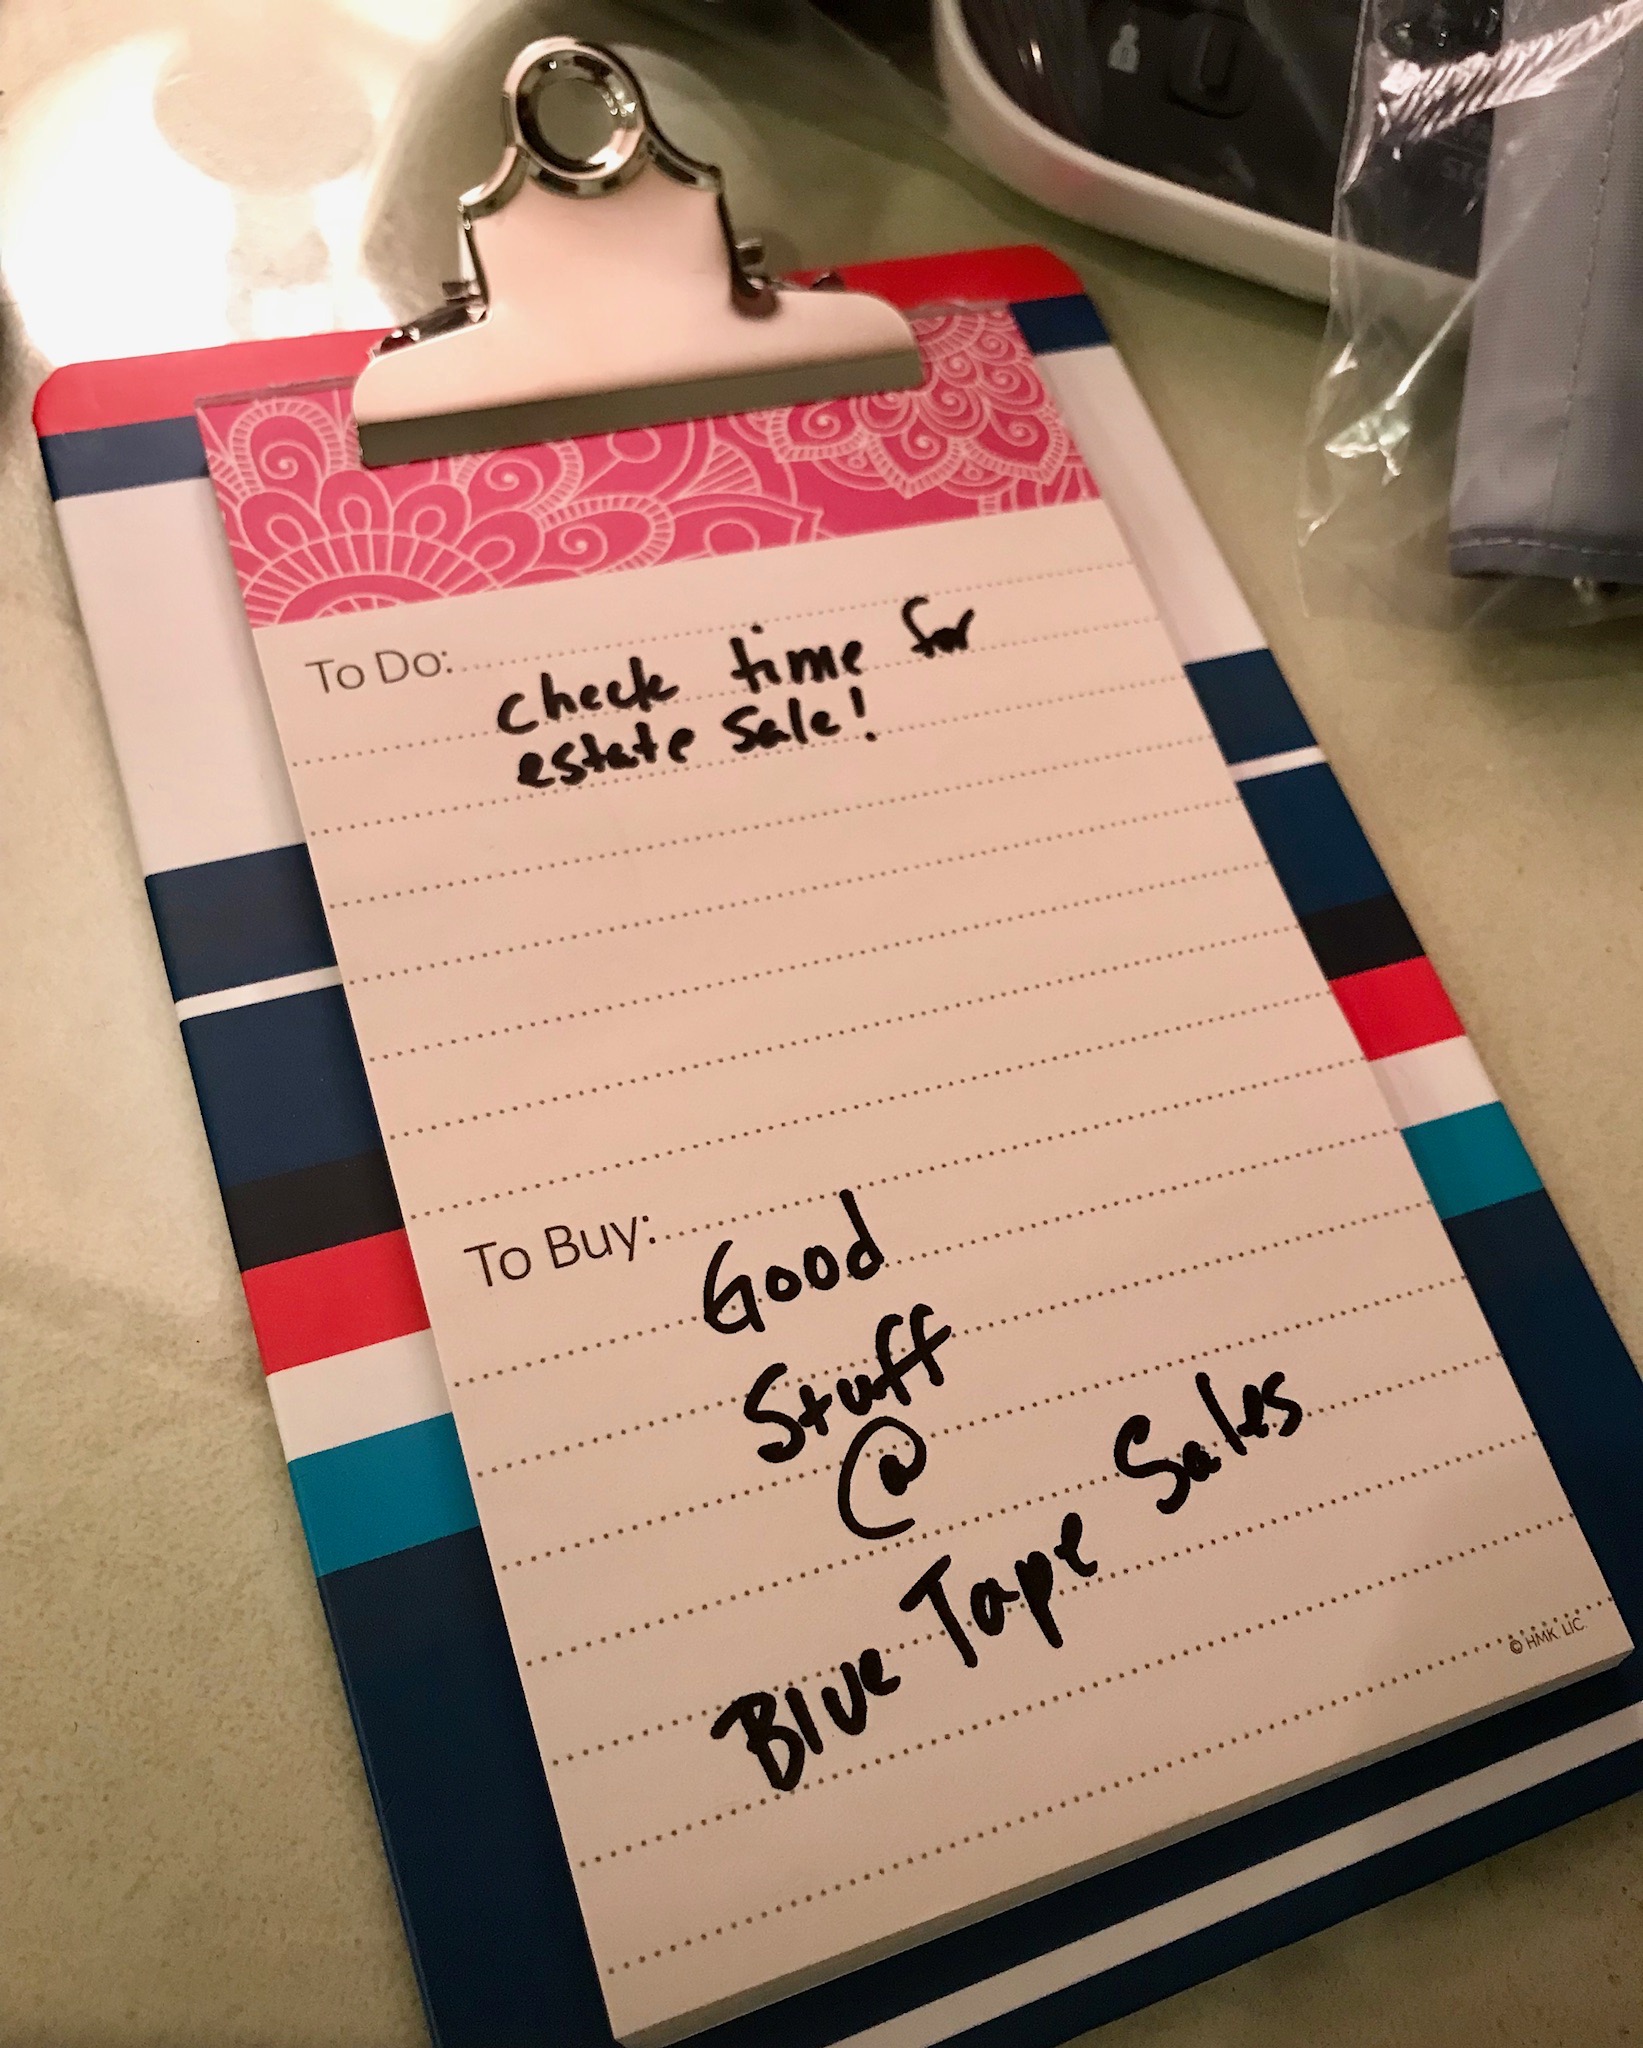 To Do:
Check time for
estate Sale!
To Buy:
Good
Stuff
@
Blue Tape Sales
© HMK. LIC.